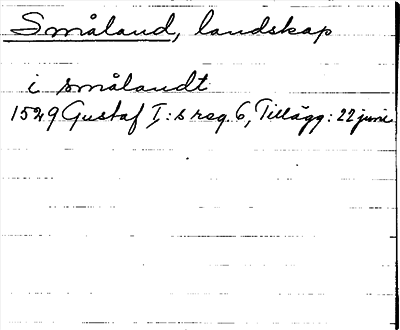 Småland, landskap
i smålandt
1529 Gustaf I:s reg. 6, Tillägg: 22 juni